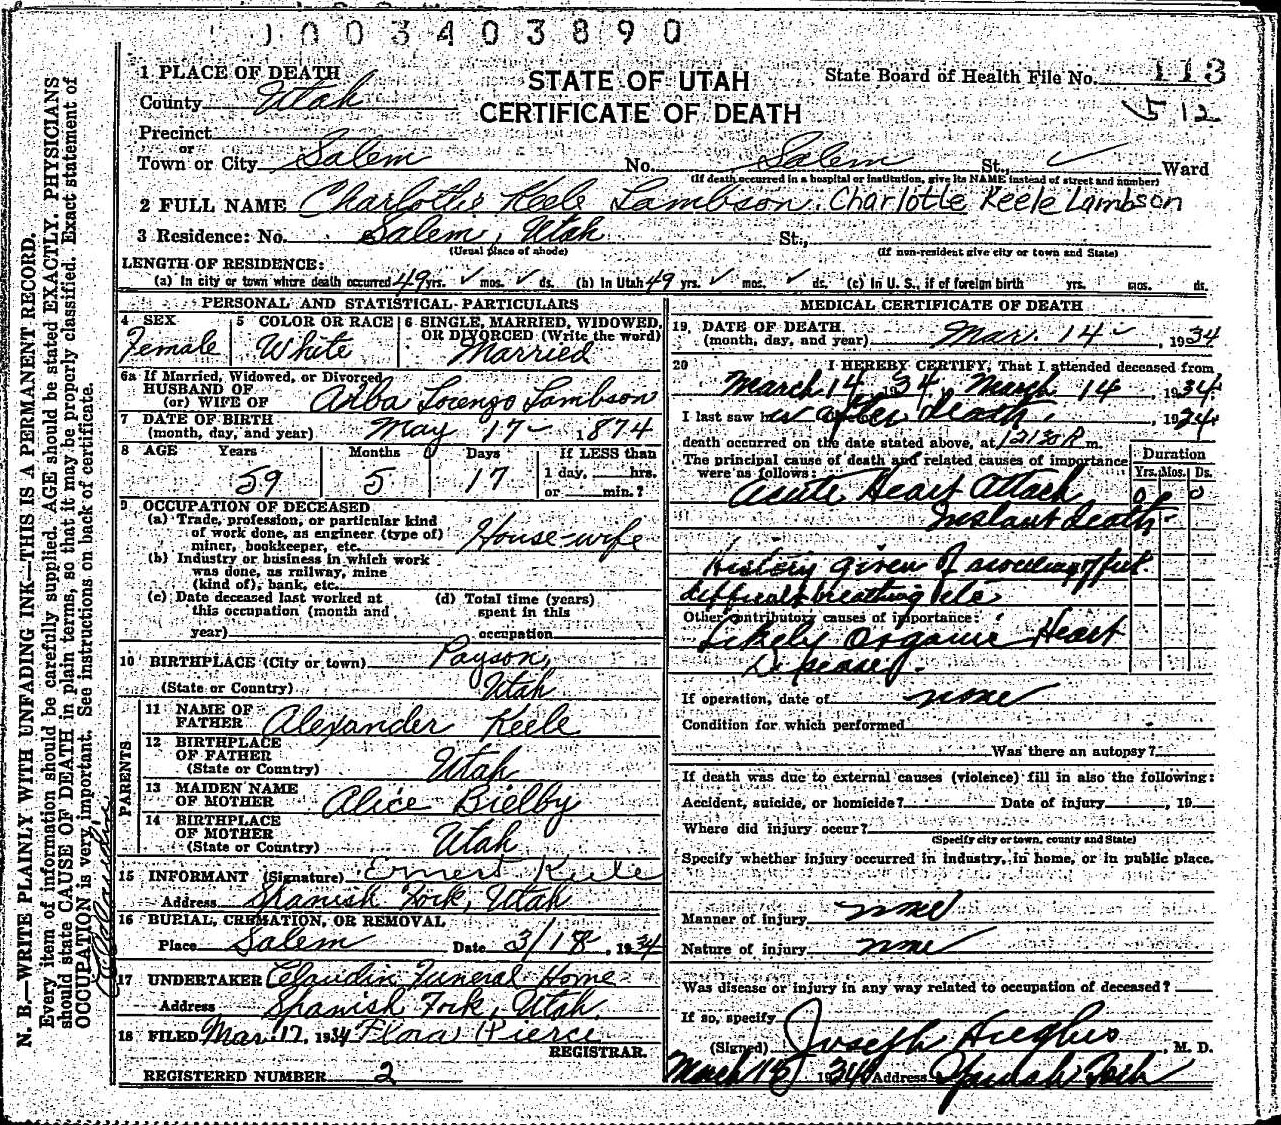 1 0 0 3 4 0 3 8 9 0
1 PLACE OF DEATH
STATE OF UTAH
CERTIFICATE OF DEATH
State Board of Health File No. 113
County Utah
5 12
Precinct
or
Town or City Salem No. Salem St., Ward
(If death occurred in a hospital or institution, give its NAME instead of street and number)
2 FULL NAME Charlotte Keele Lambson. Charlotte Keele Lambson
3 Residence: No. Salem, Utah St.,
(Usual place of abode) (If non-resident give city or town and State)
LENGTH OF RESIDENCE:
(a) In city or town where death occurred 49 yrs. ✓ mos. ✓ ds. (b) In Utah 49 yrs. ✓ mos. ✓ ds. (c) In U. S., if of foreign birth yrs. mos. ds.
PERSONAL AND STATISTICAL PARTICULARS
4 SEX 5 COLOR OR RACE 6 SINGLE, MARRIED, WIDOWED,
OR DIVORCED (Write the word)
Female White Married
6a If Married, Widowed, or Divorced
HUSBAND OF
(or) WIFE OF Arba Lorenzo Lambson
7 DATE OF BIRTH
(month, day, and year) May 17- 1874
8 AGE Years Months Days If LESS than
1 day, hrs.
59 5 17 or min.?
9 OCCUPATION OF DECEASED
(a) Trade, profession, or particular kind
of work done, as engineer (type of)
miner, bookkeeper, etc. House-wife
(b) Industry or business in which work
was done, as railway, mine
(kind of), bank, etc.
(c) Date deceased last worked at (d) Total time (years)
this occupation (month and spent in this
year) occupation
10 BIRTHPLACE (City or town) Payson,
(State or Country) Utah
PARENTS
11 NAME OF
FATHER Alexander Keele
12 BIRTHPLACE
OF FATHER
(State or Country) Utah
13 MAIDEN NAME
OF MOTHER Alice Bielby
14 BIRTHPLACE
OF MOTHER
(State or Country) Utah
15 INFORMANT (Signature) Ernest Keele
Address Spanish Fork, Utah
16 BURIAL, CREMATION, OR REMOVAL
Place Salem Date 3/18, 1934
17 UNDERTAKER Claudin Funeral Home
Address Spanish Fork, Utah.
18 FILED Mar. 17, 1934 Flora Pierce
REGISTRAR.
REGISTERED NUMBER 2
MEDICAL CERTIFICATE OF DEATH
19. DATE OF DEATH
(month, day, and year) Mar. 14-, 1934
20 I HEREBY CERTIFY, That I attended deceased from
March 14 1934, March 14, 1934
I last saw her after death, 1924
death occurred on the date stated above, at 12:30 P m.
The principal cause of death and related causes of importance
were as follows:
Duration
Yrs. Mos. Ds.
Acute Heart Attack 0 0 0
Instant death-
History given of swelling of feet
difficult breathing etc
Other contributory causes of importance:
Likely Organic Heart
Disease.
If operation, date of none
Condition for which performed
Was there an autopsy?
If death was due to external causes (violence) fill in also the following:
Accident, suicide, or homicide? Date of injury , 19
Where did injury occur?
(Specify city or town, county and State)
Specify whether injury occurred in industry, in home, or in public place.
Manner of injury none
Nature of injury none
Was disease or injury in any way related to occupation of deceased?
If so, specify
(Signed) Joseph Hughes, M. D.
March 15 1934 Address Spanish Fork
N. B.—WRITE PLAINLY WITH UNFADING INK—THIS IS A PERMANENT RECORD.
Every item of information should be carefully supplied. AGE should be stated EXACTLY. PHYSICIANS
should state CAUSE OF DEATH in plain terms, so that it may be properly classified. Exact statement of
OCCUPATION is very important. See instructions on back of certificate.